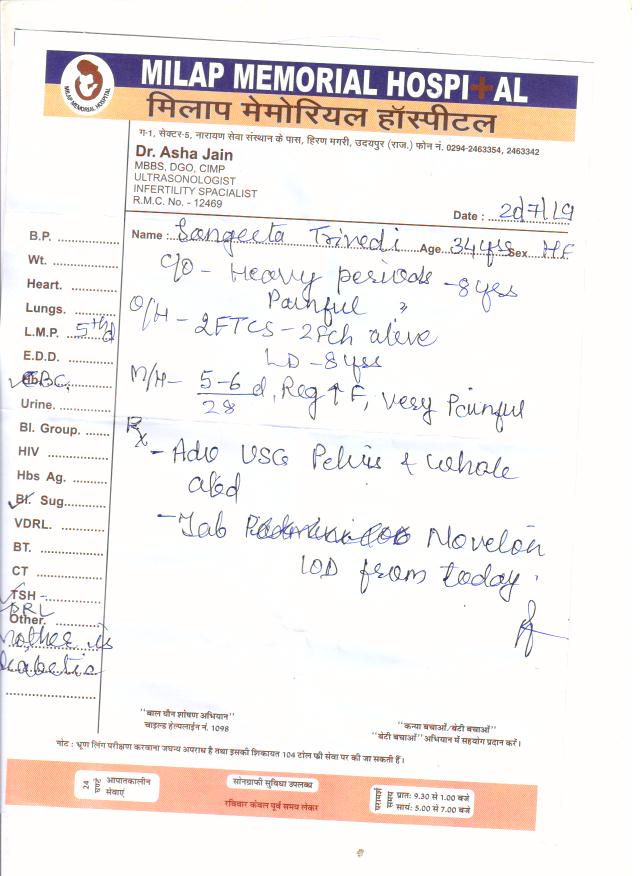 MILAP MEMORIAL HOSPITAL
मिलाप मेमोरियल हॉस्पीटल
MILAP MEMORIAL HOSPITAL
ग-1, सेक्टर-5, नारायण सेवा संस्थान के पास, हिरण मगरी, उदयपुर (राज.) फोन नं. 0294-2463354, 2463342
Dr. Asha Jain
MBBS, DGO, CIMP
ULTRASONOLOGIST
INFERTILITY SPACIALIST
R.M.C. No. - 12469
Date : 20/7/19
Name : Sangeeta Trivedi Age 34 yrs Sex HF
C/O - Heavy periods - 8 yrs
Painful "
O/H - 2FTCS - 2 Fch alive
LD - 8 yrs
M/H - 5-6 d, Reg ↑ F, very Painful
28
Rx
- Adv USG Pelvis & whole
abd
- Tab Novelon
1OD from today
B.P.
Wt.
Heart.
Lungs.
L.M.P. 5th d
E.D.D.
CBC
Urine.
Bl. Group.
HIV
Hbs Ag.
Bl. Sug.
VDRL.
BT.
CT
TSH
PRL
Other.
mother is
diabetic
"बाल यौन शोषण अभियान"
चाइल्ड हेल्पलाईन नं. 1098
"कन्या बचाओं/बेटी बचाओं"
"बेटी बचाओं" अभियान में सहयोग प्रदान करें।
नोट : भ्रूण लिंग परीक्षण करवाना जघन्य अपराध है तथा इसकी शिकायत 104 टोल फ्री सेवा पर की जा सकती हैं।
24 घण्टे आपातकालीन सेवाएं
सोनोग्राफी सुविधा उपलब्ध
रविवार केवल पूर्व समय लेकर
परामर्श समय
प्रातः 9.30 से 1.00 बजे
सायं: 5.00 से 7.00 बजे